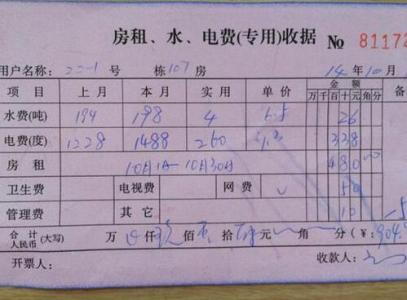 房租、水、电费(专用)收据 № 81173
用户名称: 221 号 栋 107 房 14年10月
项目 上月 本月 实用 单价 金额 万千百十元角分
水费(吨) 194 198 4 6.5 26
电费(度) 1228 1488 260 1.3 338
房租 10月1日-10月30日 480
卫生费 电视费 网费 50
管理费 其它 10
合计人民币(大写) 万 仟 佰 拾 元 角 分(¥: 904.
开票人: 收款人: